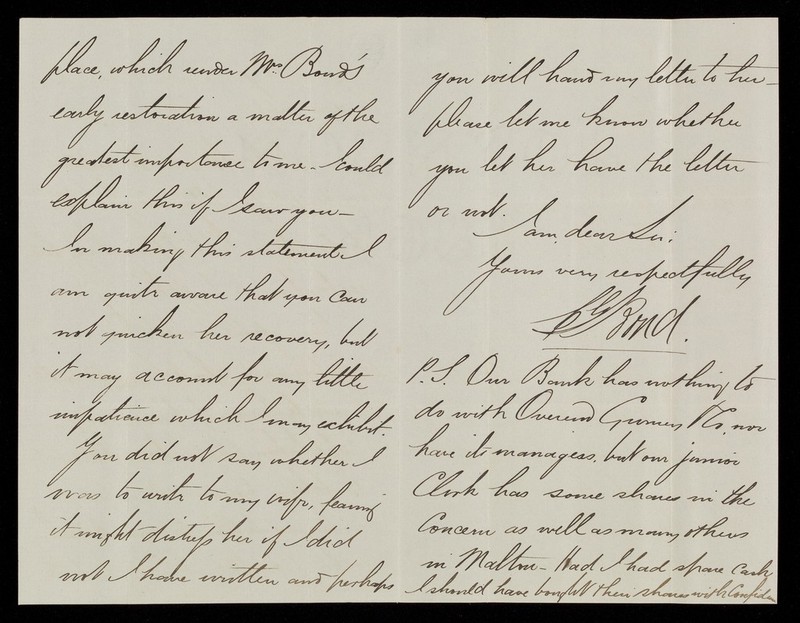 place, which render Mrs. Bond's
early restoration a matter of the
greatest importance to me. I could
explain this if I saw you —
In making this statement I
am quite aware that you can
not quicken her recovery, but
it may account for any little
impatience which I may exhibit.
You did not say whether I
was to write to my wife, fearing
it might distress her if I did
not I have written and perhaps
you will hand my letter to her —
please let me know whether
you let her have the letter
or not.
I am, dear Sir;
Yours very respectfully
Bond.
P.S. Our Bank has nothing to
do with Overend Gurney & Co, nor
have its managers. but our junior
Clerk has some shares in the
Concern as well as many others
in Malton — Had I had spare cash
I should have bought their shares with